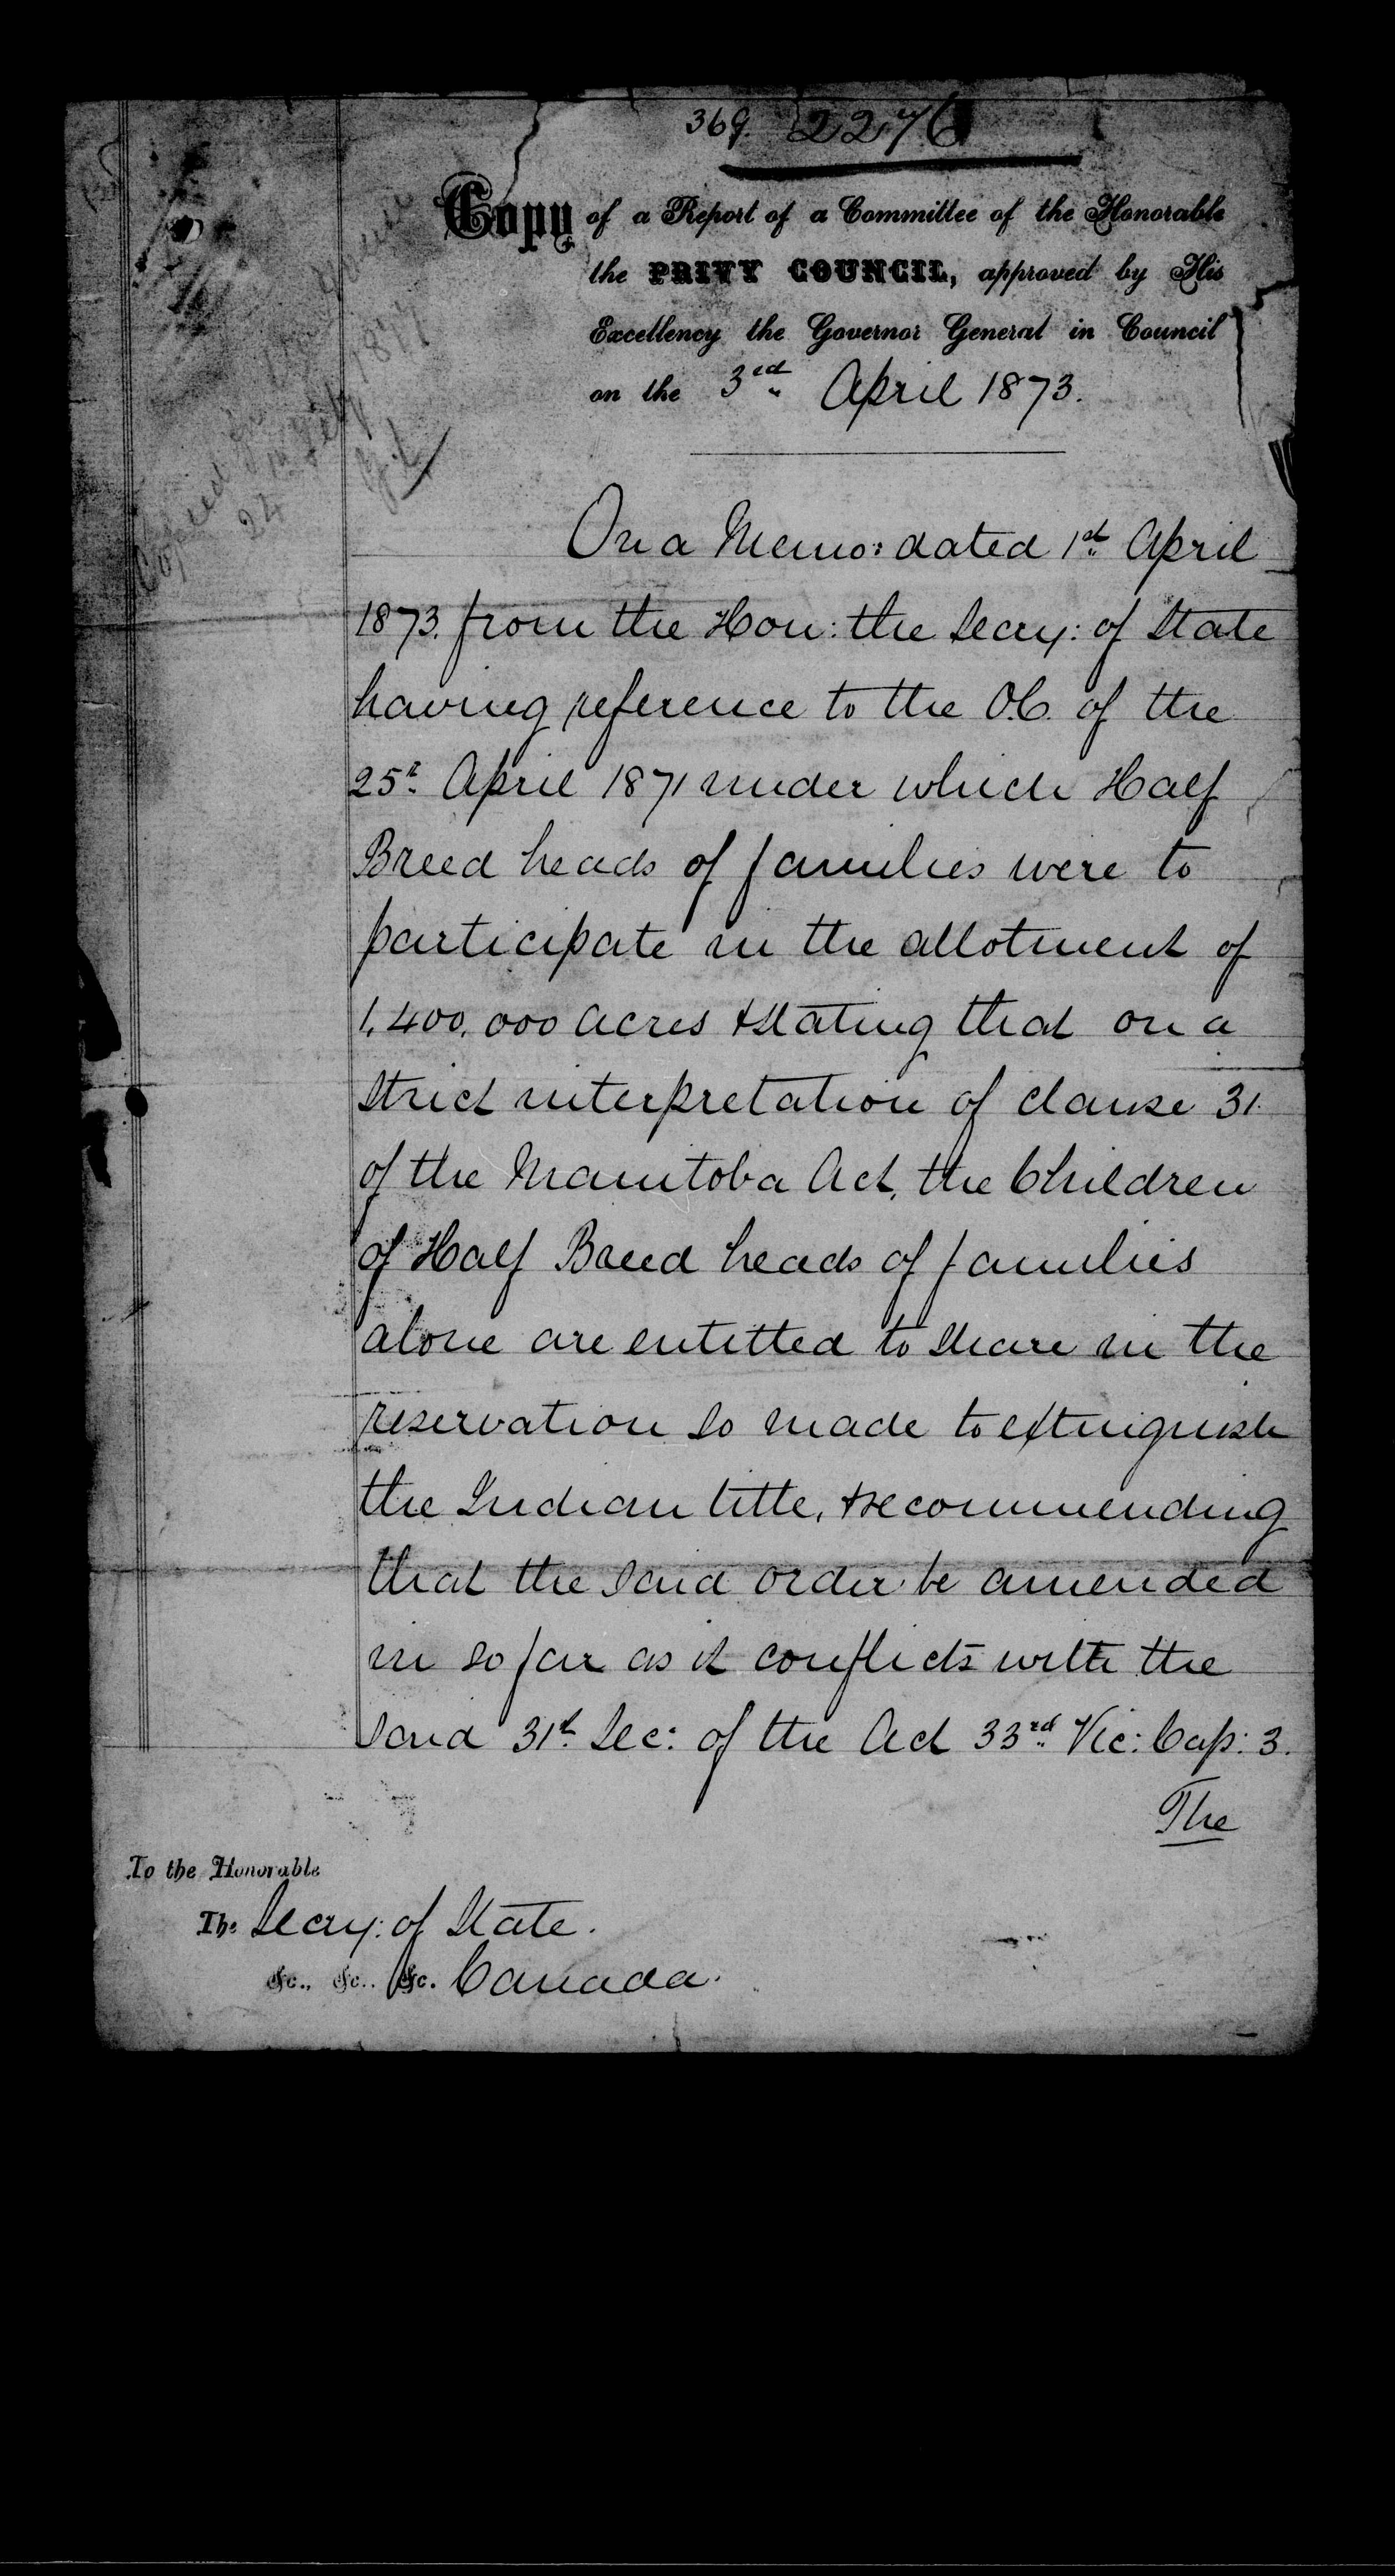 369. 2276
Copy of a Report of a Committee of the Honorable
the PRIVY COUNCIL, approved by His
Excellency the Governor General in Council
on the 3rd April 1873.
24 1877
On a Memo: dated 1st April
1873. from the Hon: the Secry: of State
having reference to the O.C. of the
25th April 1871 under which Half
Breed heads of families were to
participate in the allotment of
1,400,000 acres & stating that on a
strict interpretation of clause 31
of the Manitoba Act, the Children
of Half Breed heads of families
alone are entitled to share in the
reservation so made to extinguish
the Indian title, & recommending
that the said order be amended
in so far as it conflicts with the
said 31st Sec: of the Act 33rd Vic: Cap: 3.
The
To the Honorable
The Secry: of State.
&c., &c., &c. Canada.